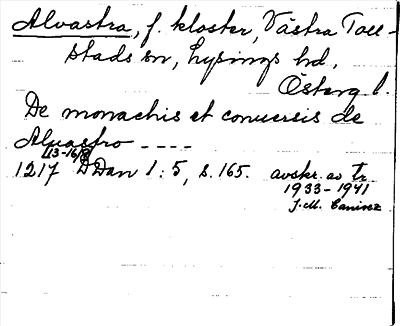 Alvastra, f. kloster, Västra Toll-
stads sn, Lysings hd,
Österg l.
De monachis et conversis de
Alvastro ----
[13-16/8]
1217 DDan 1:5, s. 165. avskr. av tr
1933-1941
J.M. Canivez